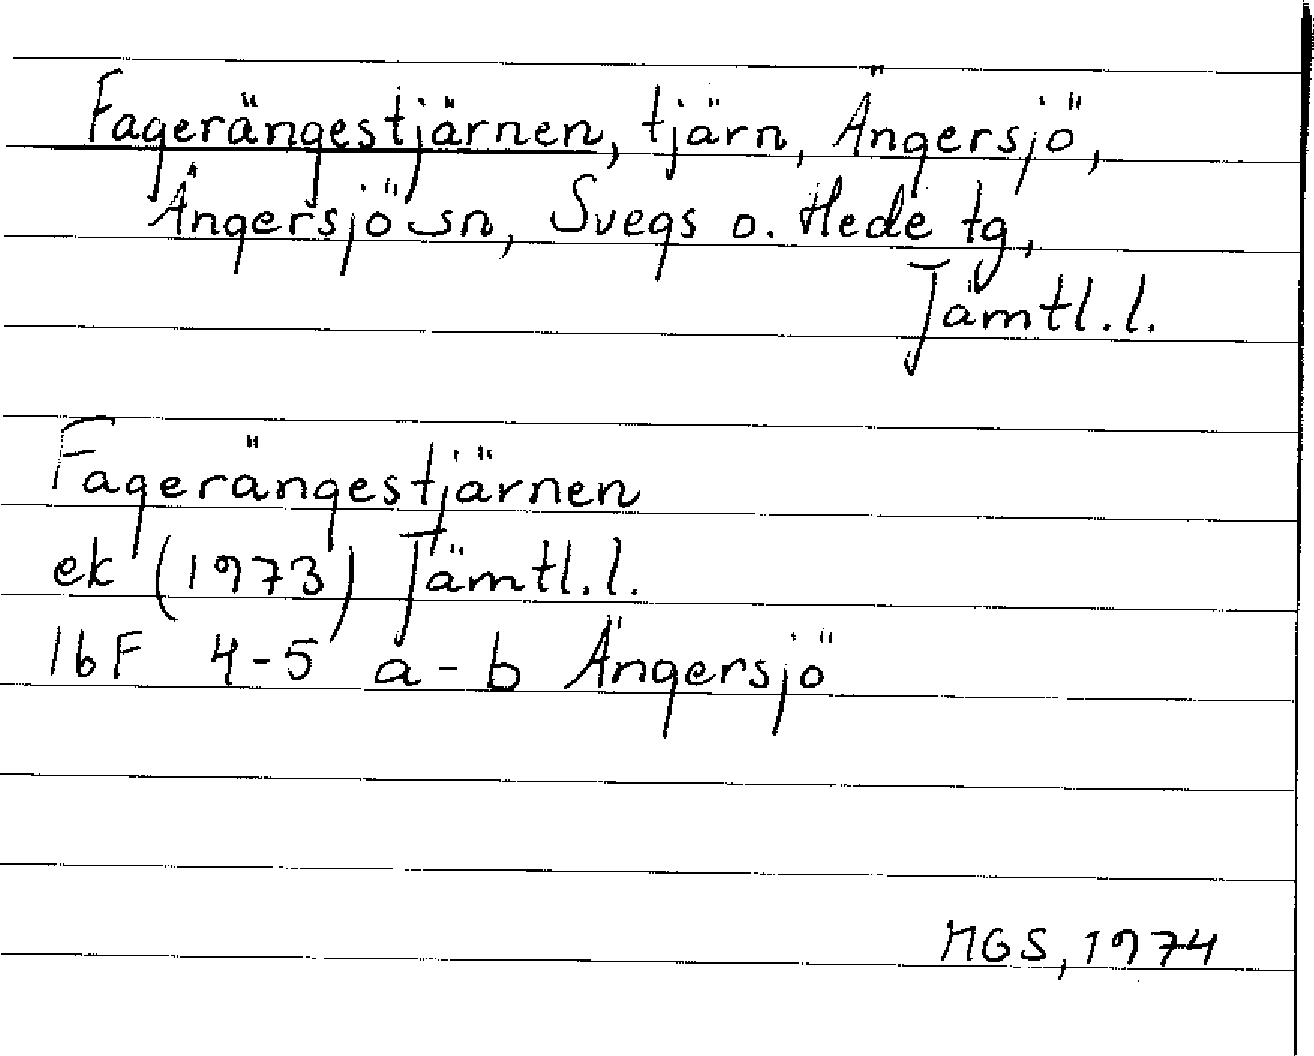 Fagerängestjärnen, tjärn, Ängersjö,
Ängersjö sn, Svegs o. Hede tg,
Jämtl.l.
Fagerängestjärnen
ek (1973) Jämtl.l.
16F 4-5 a-b Ängersjö
MGS, 1974